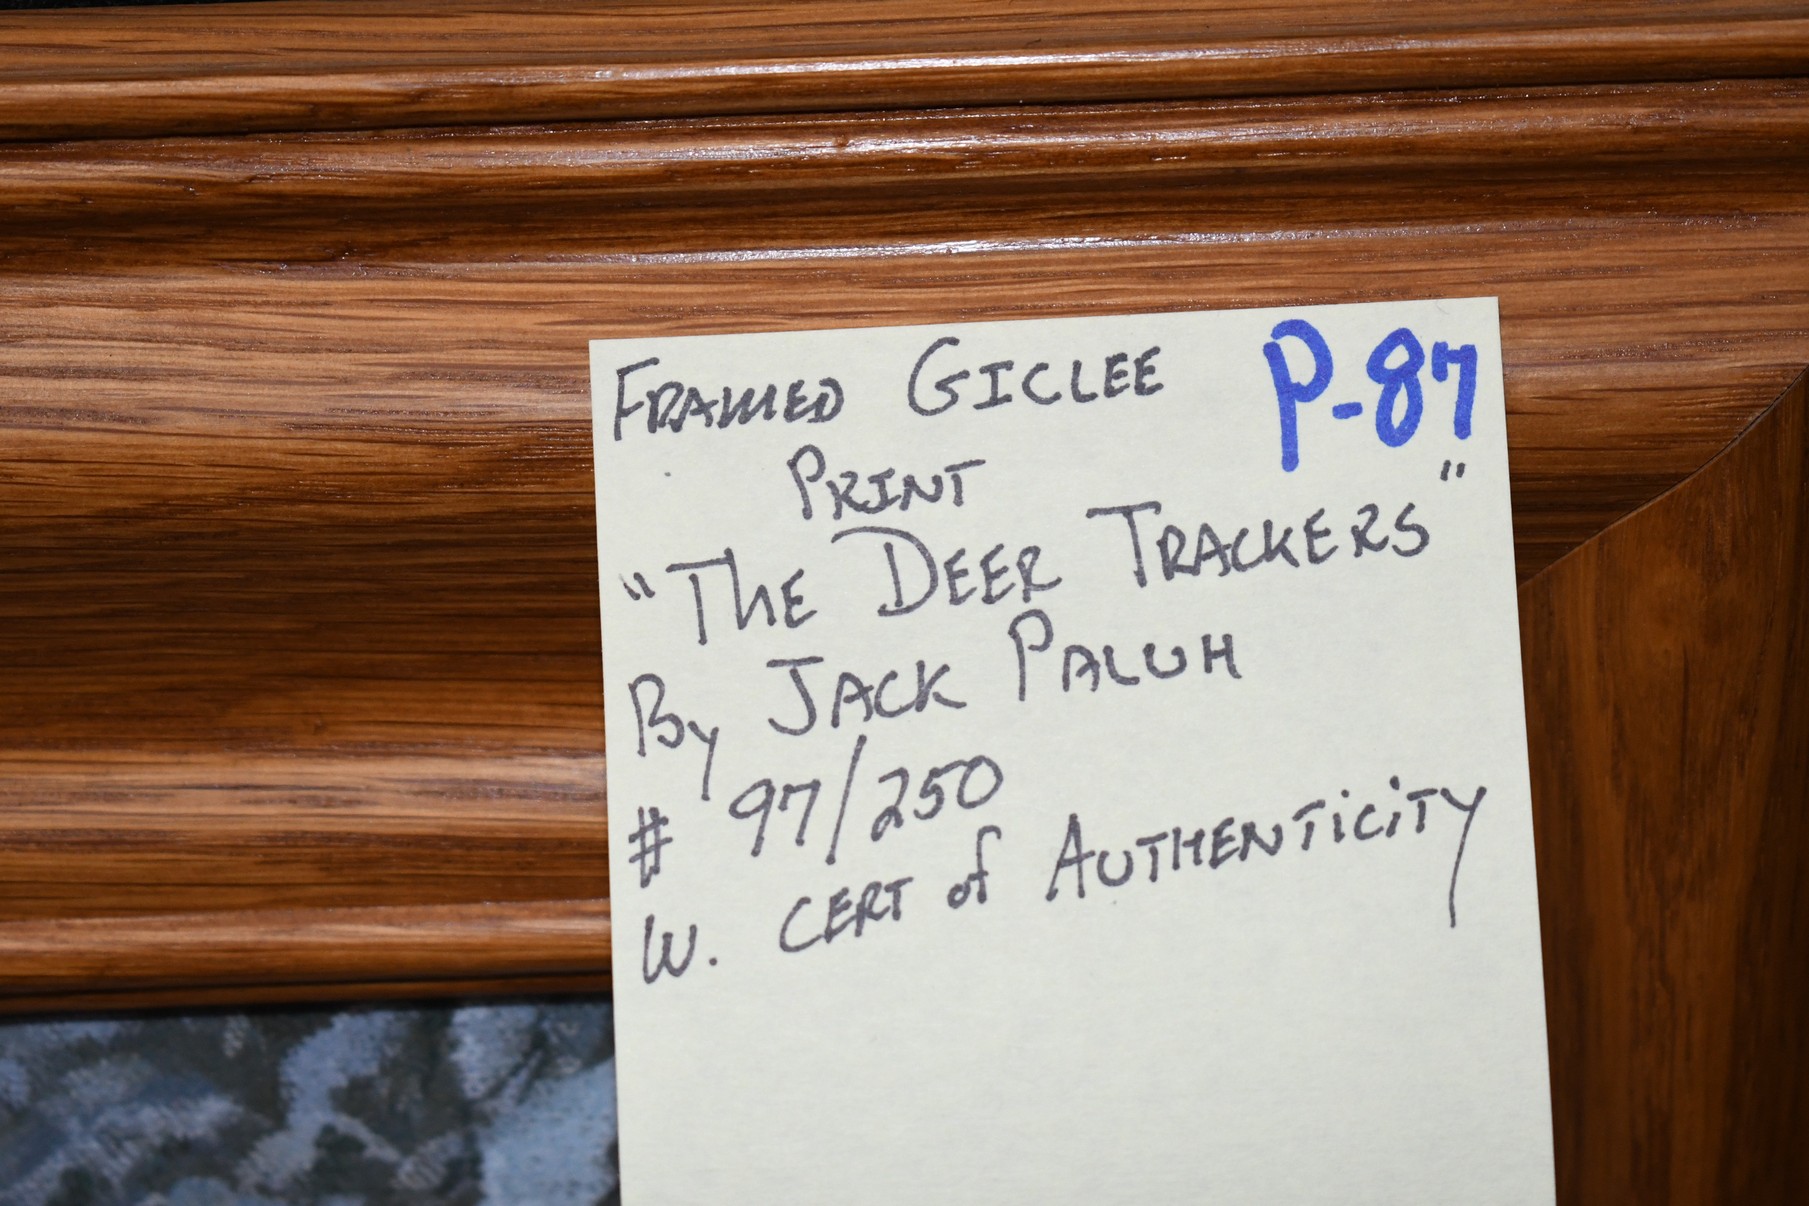 FRAMED GICLEE P-87
PRINT
"THE DEER TRACKERS"
By JACK PALUH
# 97/250
W. CERT of AUTHENTICITY